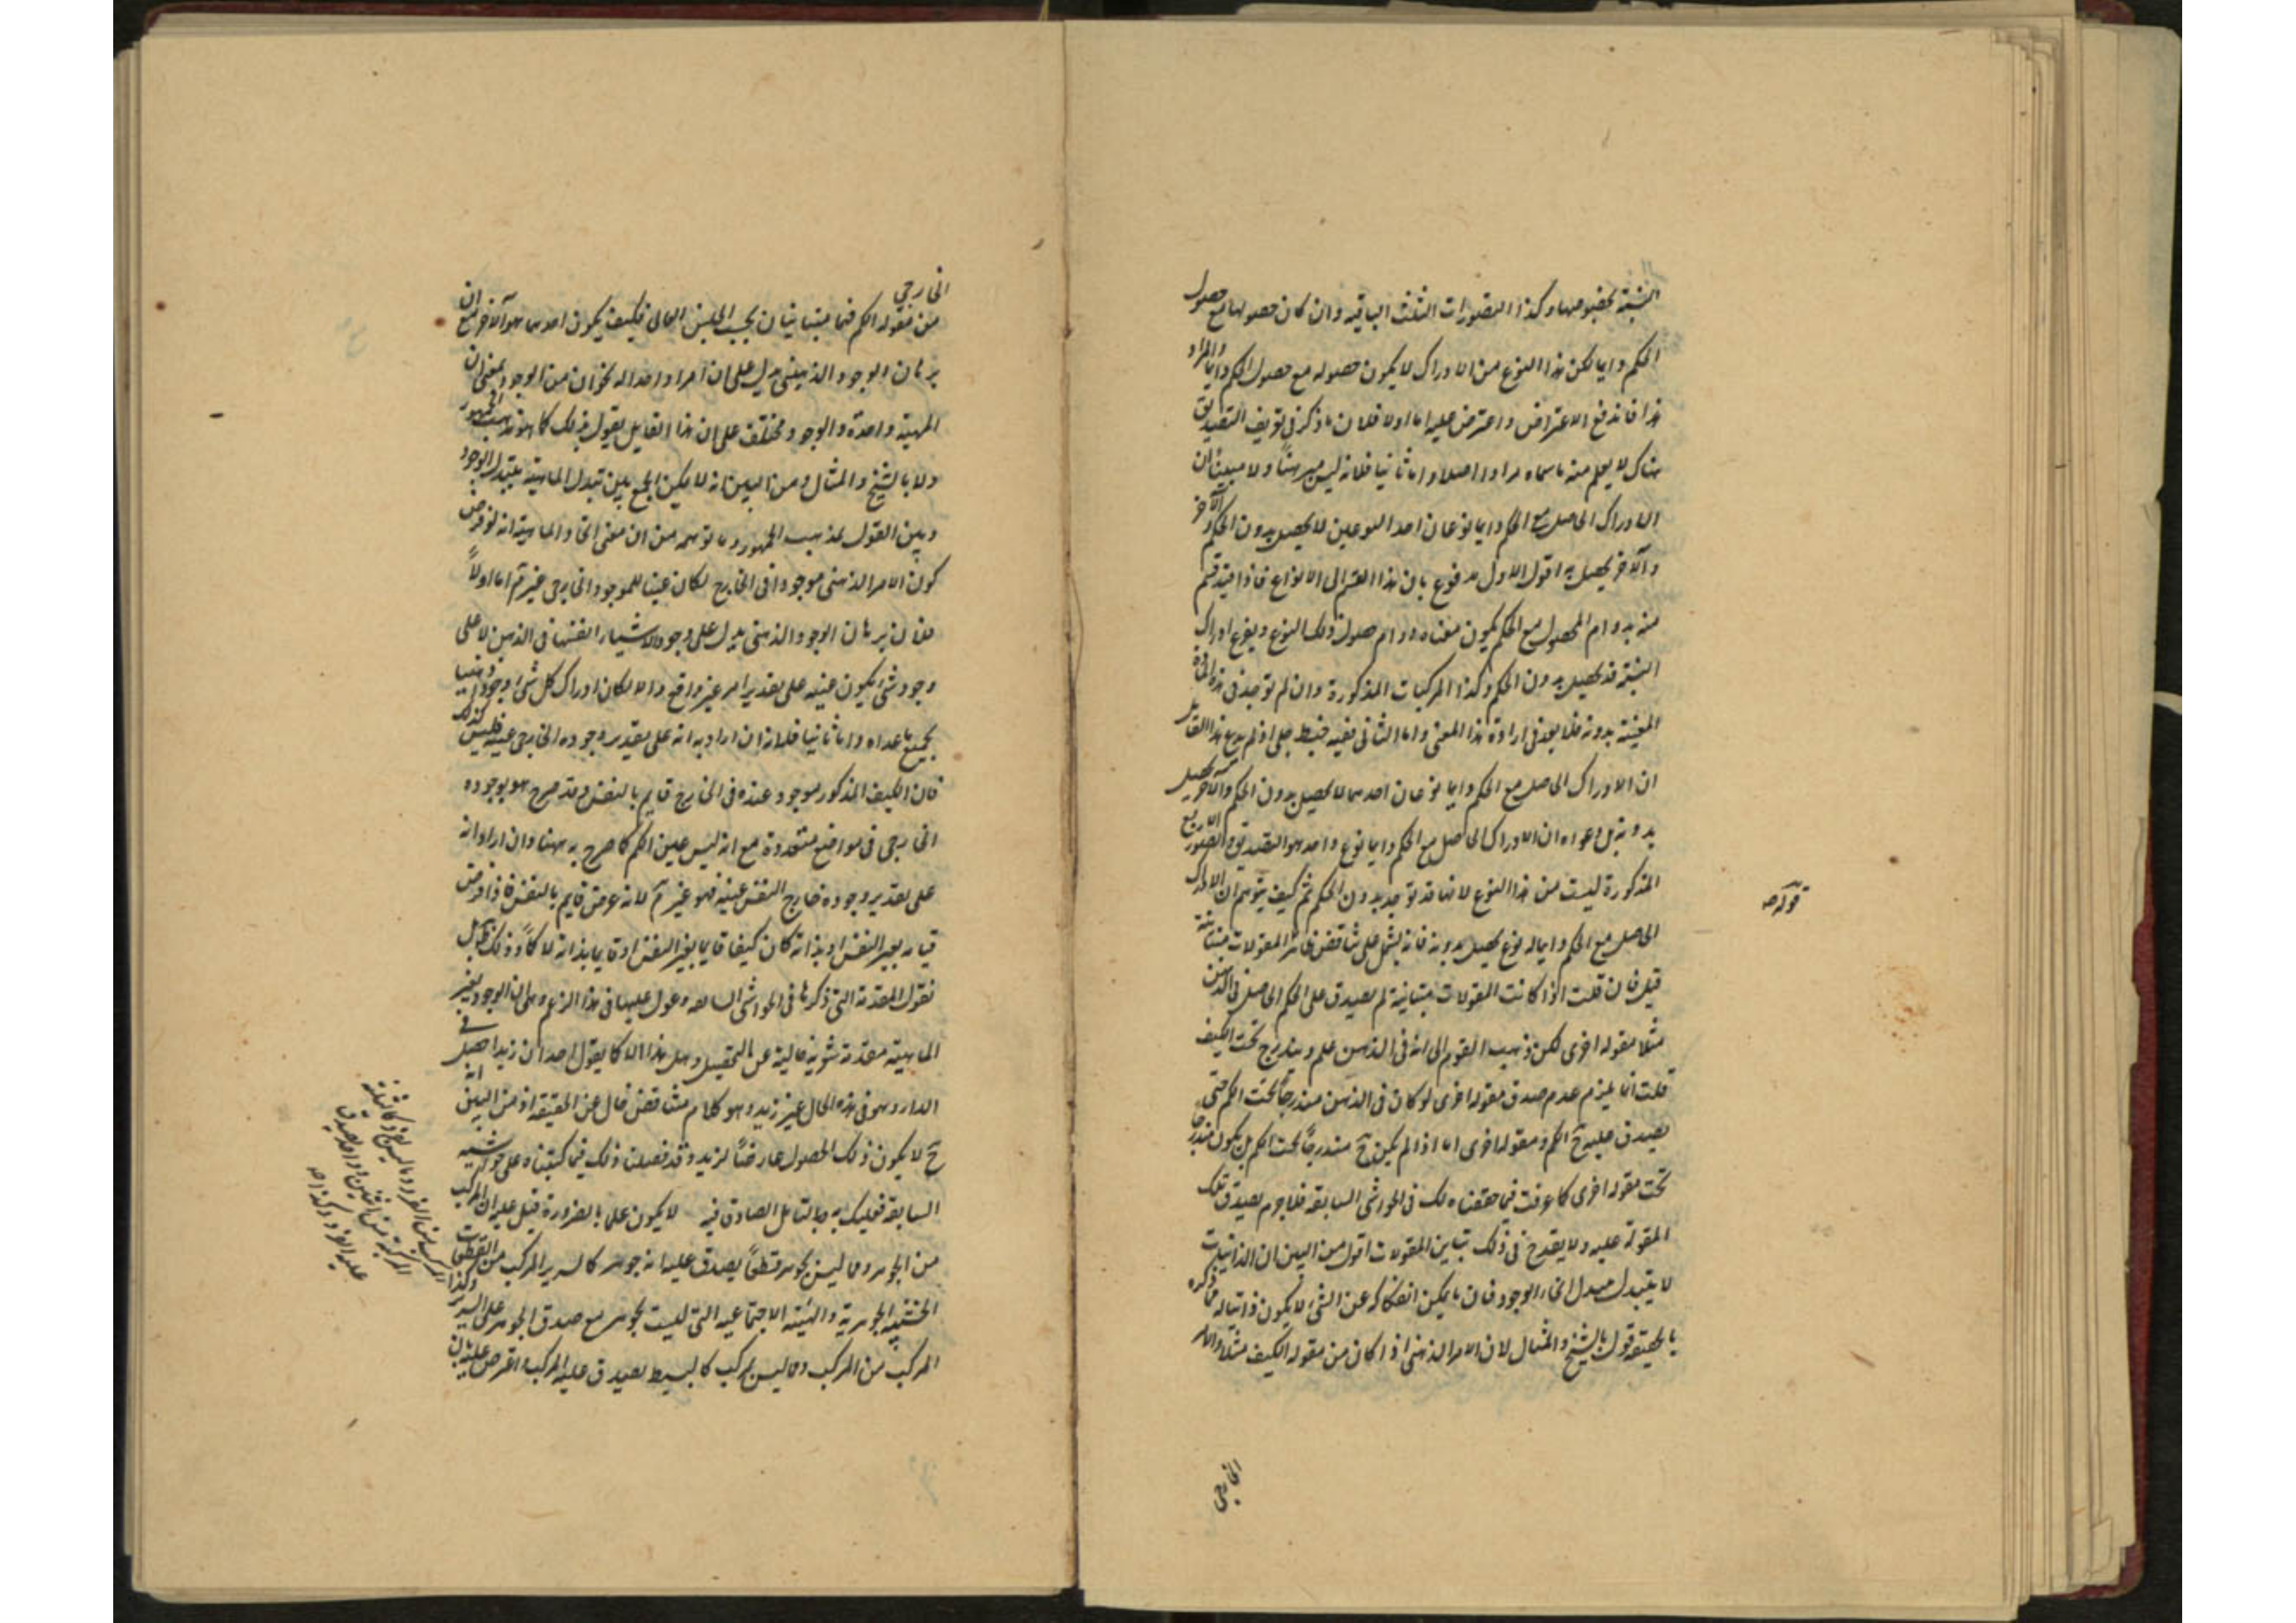 النسبة بخصوصها وكذا التصورات الثلث الباقية وان كان حصولها مع حصول
الحكم دايما لكن هذا النوع من الادراك لا يكون حصوله مع حصول الحكم دايما والمراد
هذا فاندفع الاعتراض واعترض عليه اما اولا فلان ما ذكر في تعريف التصديق
هناك لا يعلم منه ما سماه مرادا اصلا واما ثانيا فلانه ليس مبرهنا ولا مبينا ان
الادراك الحاصل مع الحكم دايما نوعان احد النوعين لا يحصل بدون الحكم
والآخر يحصل به اقول الاول مدفوع بان هذا القسم الى الانواع فاذا قيد قسم
منه بدوام الحصول مع الحكم يكون معناه دوام حصول ذلك النوع ونوع ادراك
النسبة قد يحصل بدون الحكم وكذا المركبات المذكورة وان لم توجد في هذه المادة
المعينة بدونه فلا بعد في ارادة هذا المعنى واما الثاني ففيه خبط جلي اذ لم يدع هذا القايل
ان الادراك الحاصل مع الحكم دايما نوعان احدهما لا يحصل بدون الحكم والآخر يحصل
بدونه بل دعواه ان الادراك الحاصل مع الحكم دايما نوع واحد هو التصديق والصور الاربع
المذكورة ليست من هذا النوع لانها قد توجد بدون الحكم ثم كيف يتوهم ان الادراك
الحاصل مع الحكم دايما له نوع يحصل بدونه فانه يشتمل على تناقض فان المقولات متباينة
قيل فان قلت اذا كانت المقولات متباينة لم يصدق على الحكم الحاصل في الذهن
مثلا مقولة اخرى لكن ذهب القوم الى انه في الذهن علم ويندرج تحت الكيف
قلت انما يلزم عدم صدق مقولة اخرى لو كان في الذهن مندرجا تحت الكم حتى
يصدق عليه ح الكم ومقولة اخرى اما اذا لم يكن ح مندرجا تحت الكم بل يكون مندرجا
تحت مقولة اخرى كما عرفت فما حققناه لك في الحواشي السابقة فلا جرم يصدق تلك
المقولة عليه ولا يقدح في ذلك تباين المقولات اقول من البين ان الذاتيات
لا يتبدل بتبدل انحاء الوجود فان ما يمكن انفكاكه عن الشيء لا يكون ذاتيا له فما ذكره
بالحقيقة قول بالشبح والمثال لان الامر الذهني اذا كان من مقولة الكيف مثلا والامر
الخارجي
قوله صه
الخارجي
من مقولة الكم فهما متباينان بحسب الجنس العالي فكيف يكون احدهما هو الآخر مع ان
برهان الوجود الذهني يدل على ان امرا واحدا له نحوان من الوجود بمعنى ان
المهية واحدة والوجود مختلف على ان هذا القايل يقول بذلك كما هو مذهب الجمهور
ولا بالشبح والمثال ومن البين انه لا يمكن الجمع بين تبدل الماهية بتبدل الوجود
وبين القول بمذهب الجمهور وما توهمه من ان معنى اتحاد الماهية انه لو فرض
كون الامر الذهني موجودا في الخارج لكان عينا للموجود الخارجي غير تم اما اولا
فلان برهان الوجود الذهني يدل على وجود الاشياء انفسها في الذهن لا على
وجود شيء يكون عينه على تقدير امر غير واقع والا لكان ادراك كل شيء وجودا ذهنيا
لجميع ما عداه واما ثانيا فلانه ان اراد به انه على تقدير وجوده الخارجي عينه فليس كذلك
فان الكيف المذكور موجود عنده في الخارج قايم بالنفس وقد صرح هو بوجوده
الخارجي في مواضع متعددة مع انه ليس عين الكم كما صرح به ههنا وان اراد انه
على تقدير وجوده خارج النفس عينه فهو غير تم لانه عرض قايم بالنفس فاذا فرض
قيامه بغير النفس او بذاته كان كيفا قايما بغير النفس او قايما بذاته لا كما وذلك
نقول المقدمة التي ذكرها في الحواشي السابقة وعول عليها في هذا الزعم وهي ان الوجود بغير
الماهية مقدمة شعرية خالية عن التحصيل وهل هذا الا كما يقول احد ان زيدا حصل في
الدار وهو في هذه الحال غير زيد وهو كلام متناقض خال عن الحقيقة اذ من البين انه
ح لا يكون ذلك الحصول عارضا لزيد وقد فصلنا ذلك فيما كتبناه على حواشيه
السابقة فعليك به وبالتامل الصادق فيه لا يكون علما بالضرورة قيل عليه ان المركب
من الجوهر وما ليس بجوهر قطعا يصدق عليه انه جوهر كالسرير المركب من القطعات
الخشبية الجوهرية والهيئة الاجتماعية التي ليست بجوهر مع صدق الجوهر على السرير وكذا
المركب من المركب وما ليس بمركب كالبسيط يصدق عليه المركب اعترض عليه بان
المركب من الفرد وما ليس بفرد كالثلثة
المركبة من اثنين وواحد يصدق
عليه الفرد وكذا صه